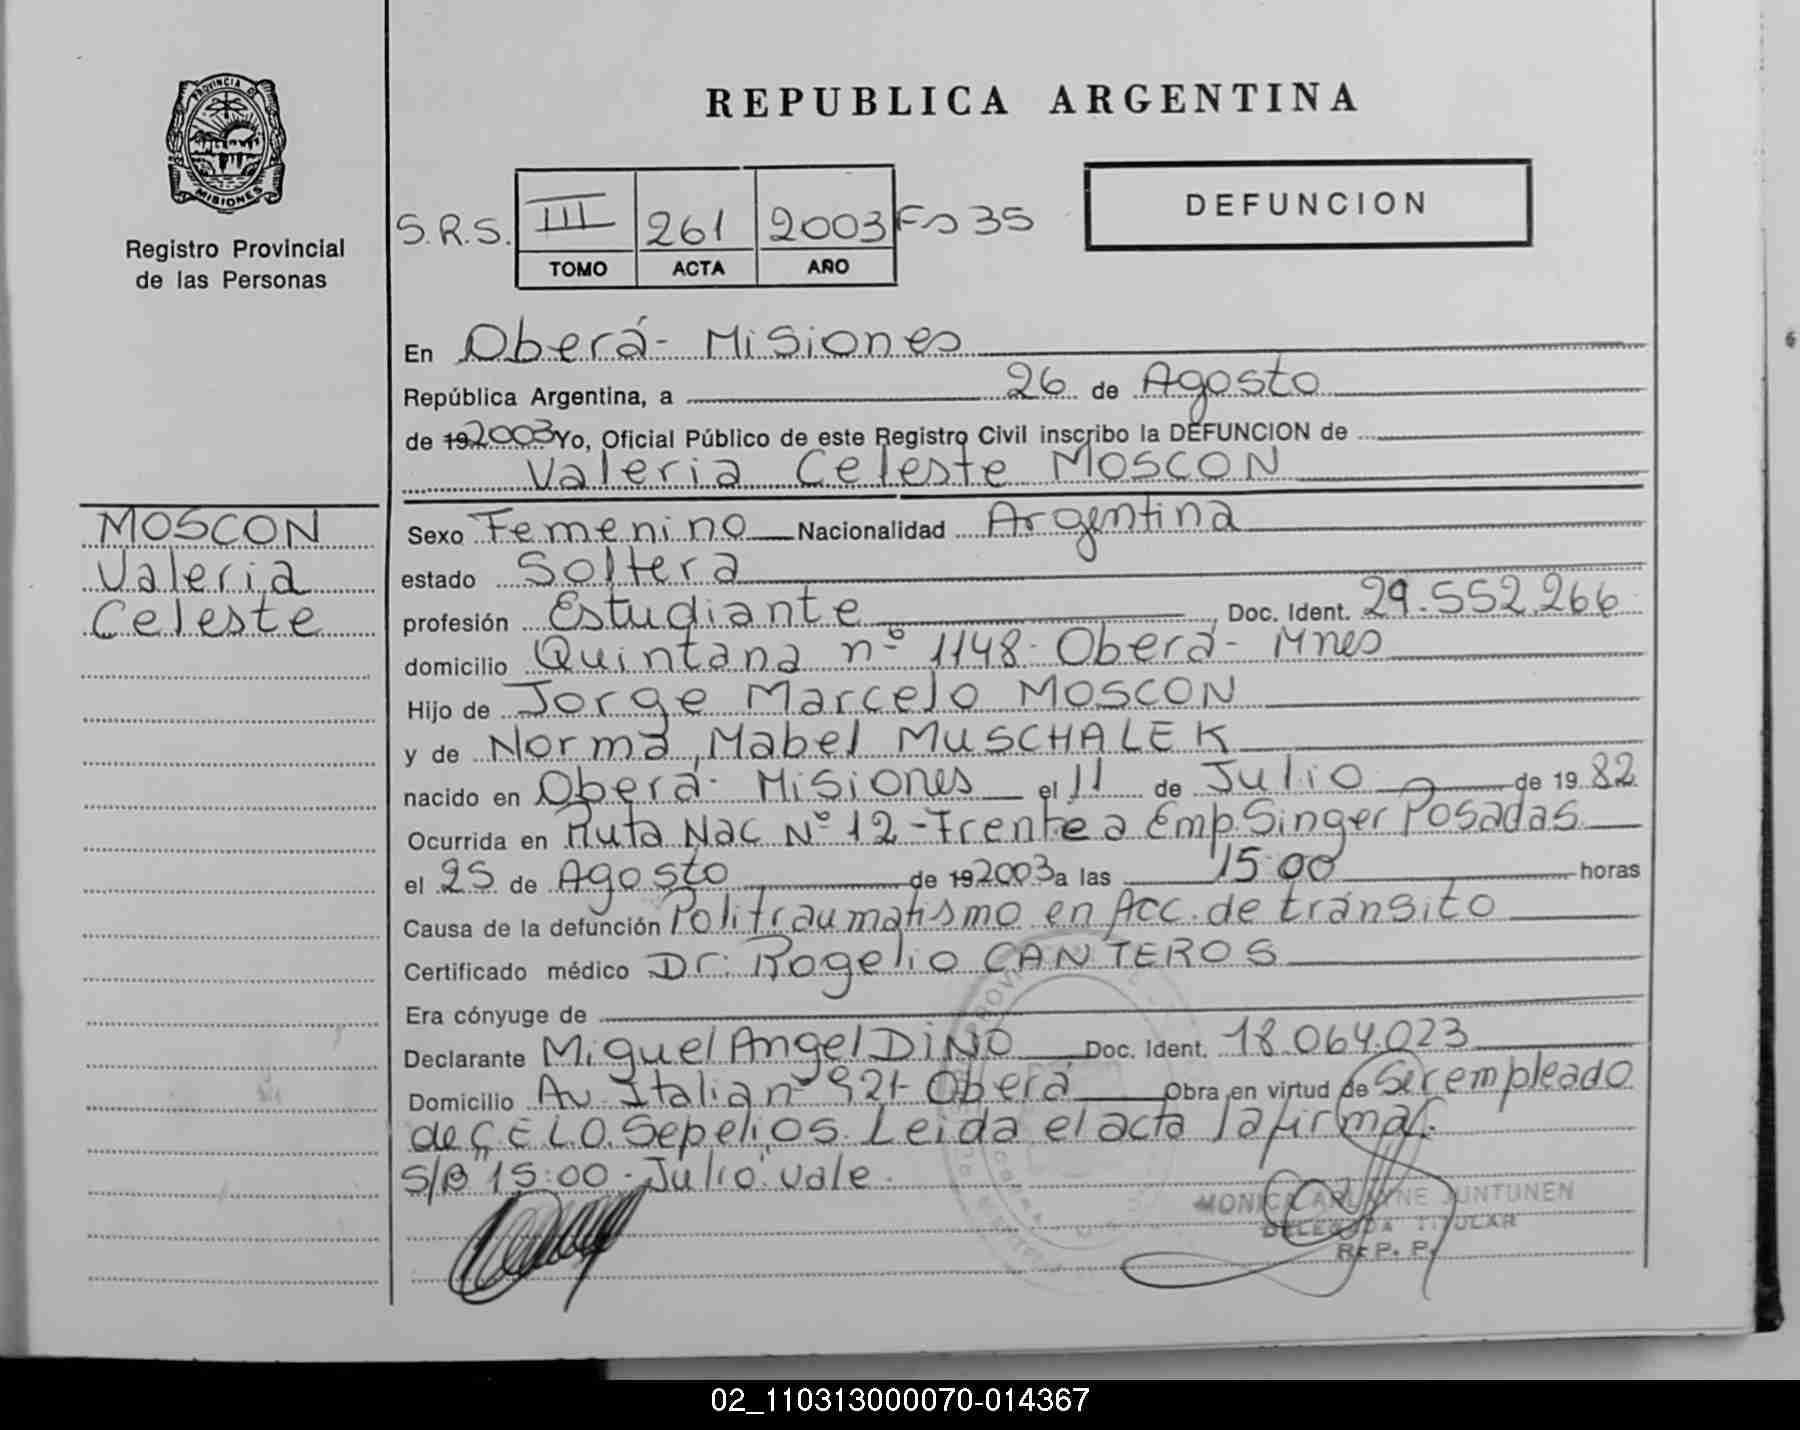 PROVINCIA DE
MISIONES
Registro Provincial
de las Personas
REPUBLICA ARGENTINA
DEFUNCION
S.R.S. III 261 2003 Fo 35
TOMO ACTA AÑO
En Oberá - Misiones
República Argentina, a 26 de Agosto
de 19 2003 Yo, Oficial Público de este Registro Civil inscribo la DEFUNCION de
Valeria Celeste MOSCON
MOSCON
Valeria
Celeste
Sexo Femenino Nacionalidad Argentina
estado Soltera
profesión Estudiante, Doc. Ident. 29.552.266
domicilio Quintana nº 1148 - Oberá - Mnes
Hijo de Jorge Marcelo MOSCON
y de Norma, Mabel MUSCHALEK
nacido en Oberá - Misiones el 11 de Julio de 19 82
Ocurrida en Ruta Nac Nº 12 - Frente a Emp. Singer Posadas
el 25 de Agosto de 19 2003 a las 15:00 horas
Causa de la defunción Politraumatismo en Acc. de tránsito
Certificado médico Dr. Rogelio CANTEROS
Era cónyuge de
Declarante Miguel Angel DINO Doc. Ident. 18.064.023
Domicilio Av. Italia nº 921 - Oberá Obra en virtud de Ser empleado
de C.E.L.O. Sepelios. Leida el acta la firma.
S/B "15:00 - Julio" Vale.
MONICA JUNTUNEN
DELEGADA TITULAR
R. P. P.
02_110313000070-014367